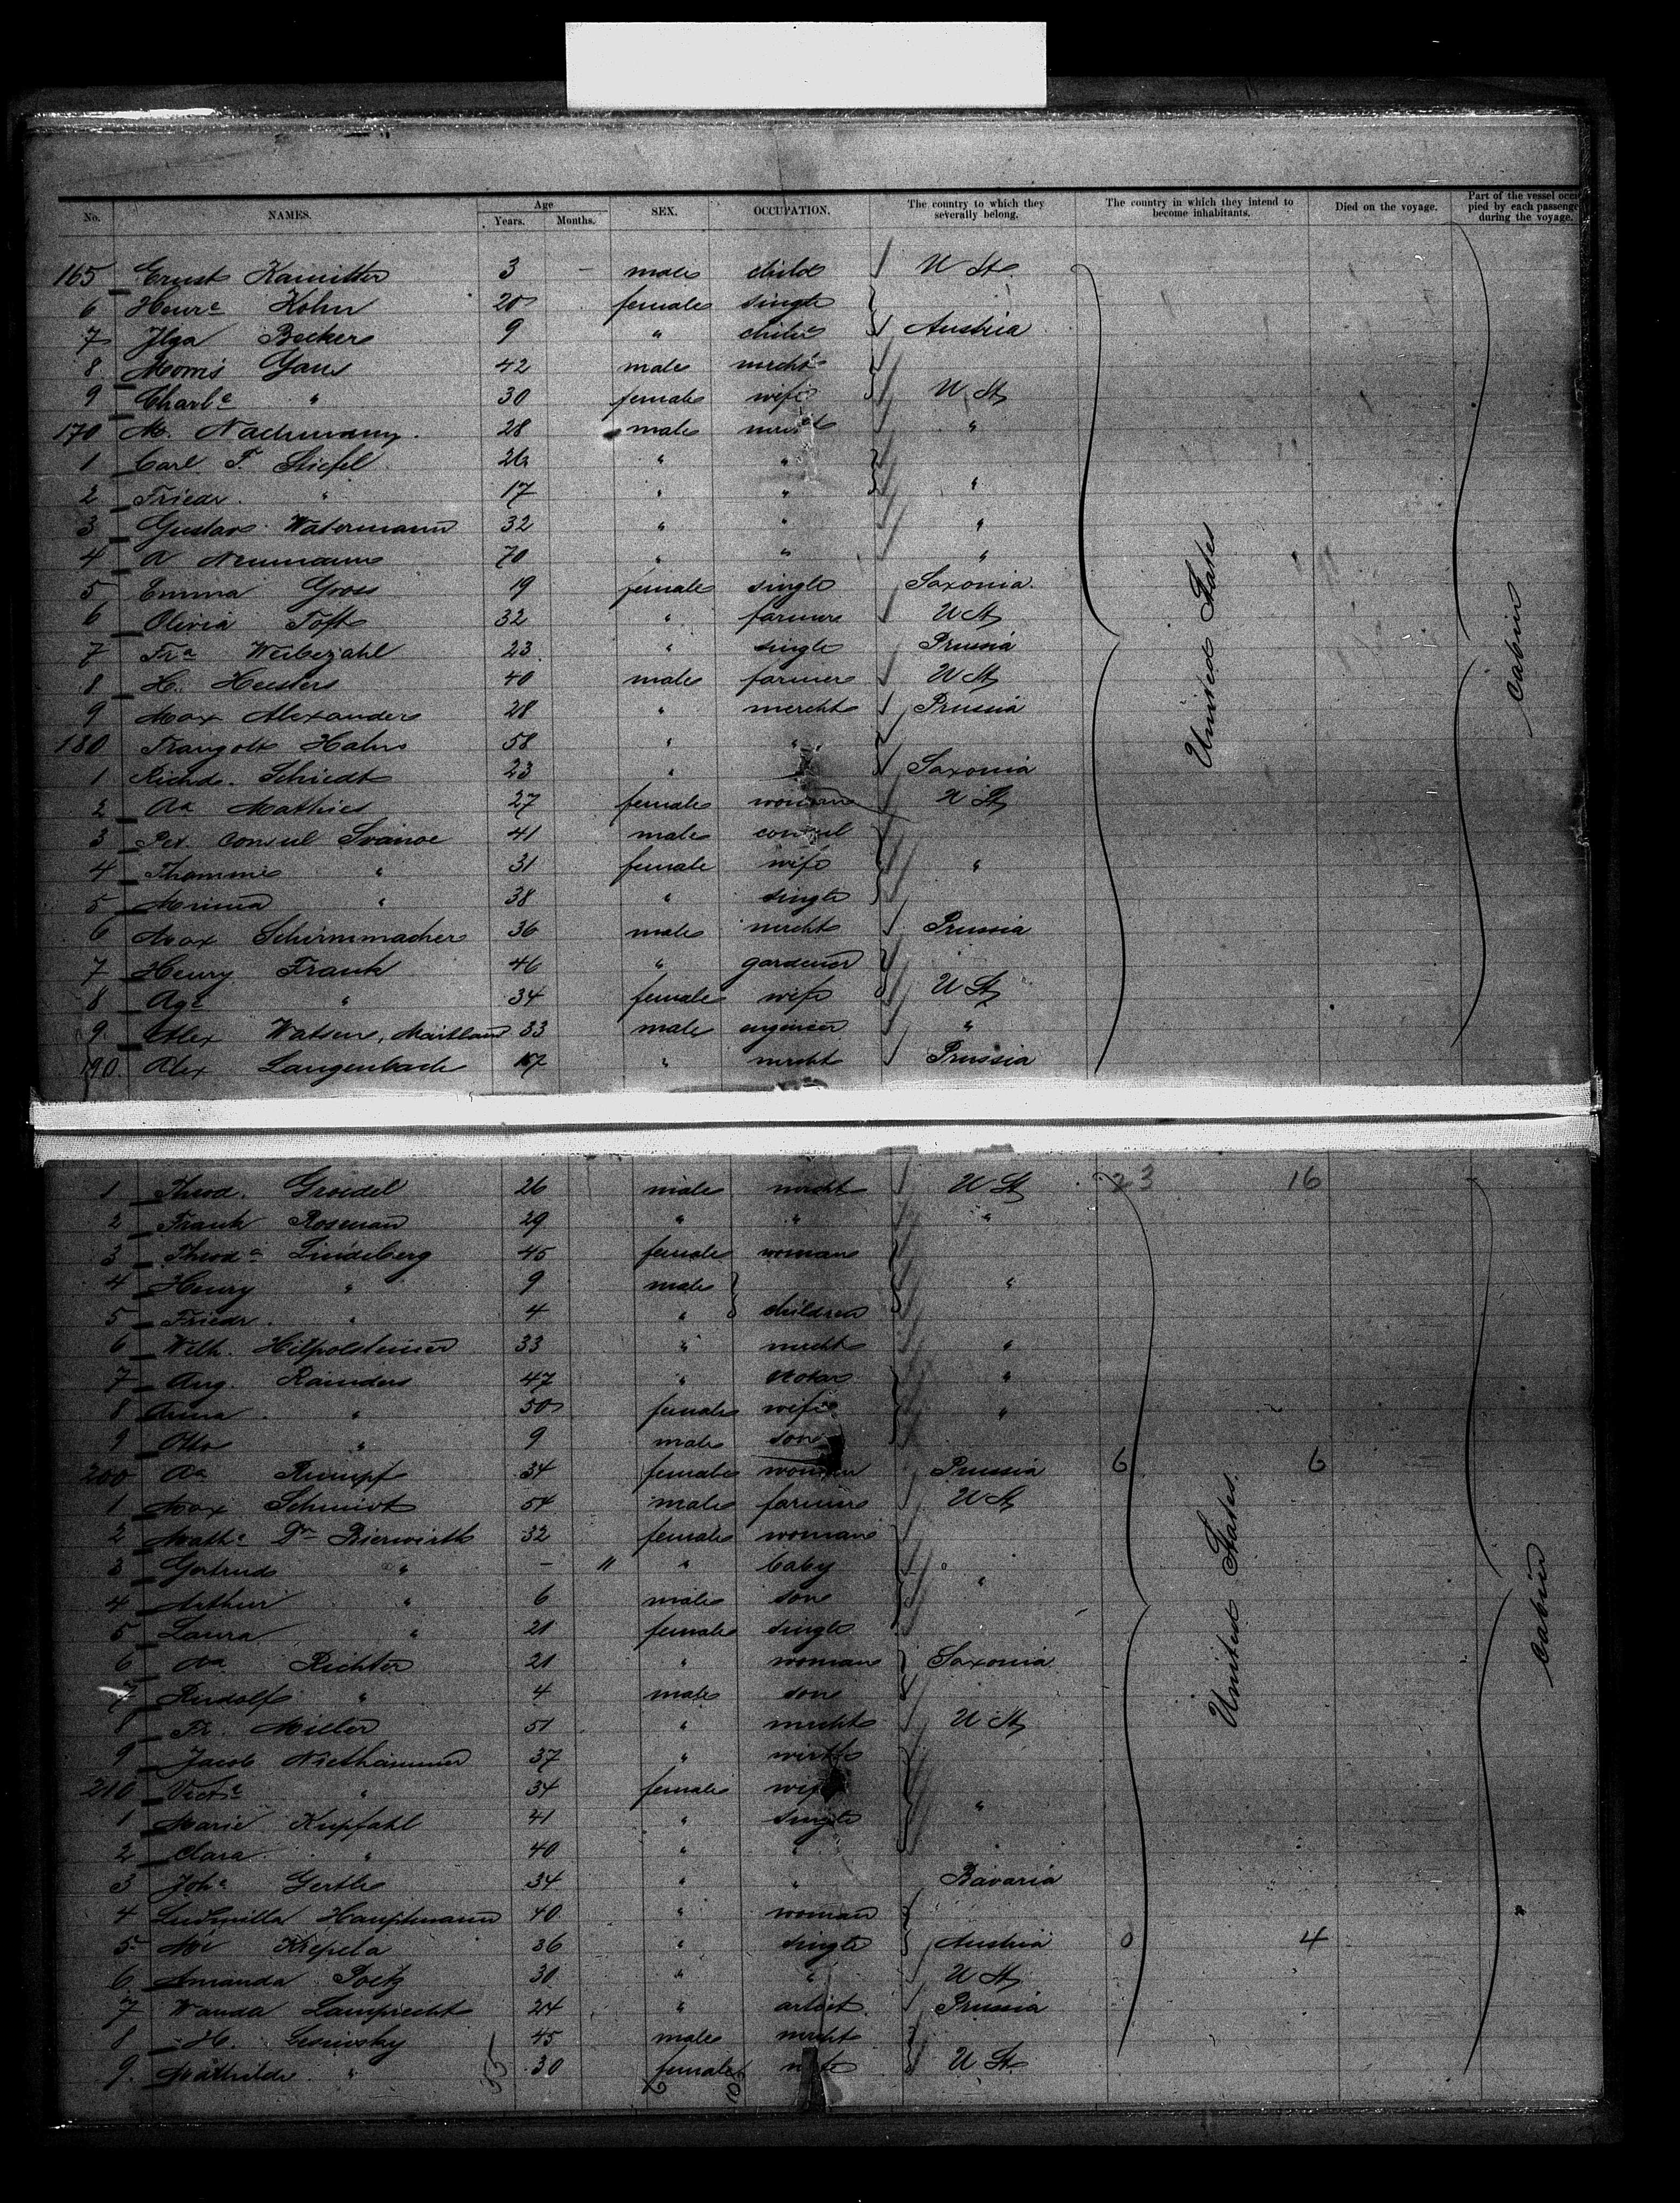 No. NAMES. Age Years. Months. SEX. OCCUPATION. The country to which they severally belong. The country in which they intend to become inhabitants. Died on the voyage. Part of the vessel occupied by each passenger during the voyage.
165 Ernst Kamitter 3 – male child U St.
6 Henre Kohn 20 female single
7 Ilga Becker 9 " child Austria
8 Morris Gans 42 male mercht
9 Charle " 30 female wife U St
170 M. Nachmann 28 male "
1 Carl F. Stiefel 26 " "
2 Friedr. " 17 " " "
3 Gustav Watermann 32 " " "
4 A Neumann 70 " " "
5 Emma Gross 19 female single Saxonia.
6 Olivia Toft 32 " farmer U St
7 Fra Weibezahl 23 " single Prussia
8 H. Heesters 40 male farmer U St
9 Max Alexander 28 " mercht Prussia
180 Traugott Hahn 58 " "
1 Richd. Schiedt 23 " Saxonia
2 Aa Mathies 27 female woman U St
3 Per. Consul Svanoe 41 male consul
4 Thammie " 31 female wife "
5 Minna " 38 " single
6 Max Schirmmacher 36 male mercht Prussia
7 Henry Frank 46 " gardener
8 Age " 34 female wife U St
9 Alex Watson, Maitland 33 male engineer "
190. Alex Langenbach " mercht Prussia
United States
Cabin
1 Theod. Groedel 26 male mercht U St 23 16
2 Frank Roseman 29 " " "
3 Theoda Lindeberg 45 female woman
4 Henry " 9 male "
5 Friedr. " 4 " children
6 Wilh. Hilpolsteiner 33 " mercht "
7 Aug. Rainders 47 " Notar "
8 Anna " 50 female wife "
9 Otto " 9 male son
200 Aa Rumpf 34 female woman Prussia 6 6
1 Max Schmidt 54 male farmer U St
2 Mathe Dr Bierwirth 32 female woman
3 Gertrud " – 11 " baby
4 Arthur " 6 male son "
5 Laura " 21 female single
6 Aa Richter 21 " woman Saxonia
7 Rudolf " 4 male son
8 Fr. Miller 51 " mercht U St
9 Jacob Niethammer 37 " wirth
210 Victe " 34 female wife
1 Marie Kupfahl 41 " single "
2 Clara " 40 " "
3 Johe Gertle 34 " " Bavaria
4 Ludmilla Hauptmann 40 " woman
5 Krepela 36 " single Austria 0 4
6 Amanda Poetz 30 " " U St
7 Wanda Lamprecht 24 " artist Prussia
8 H. 45 male mercht
9. Mathilde " 30 female wife U St.
United States.
Cabin